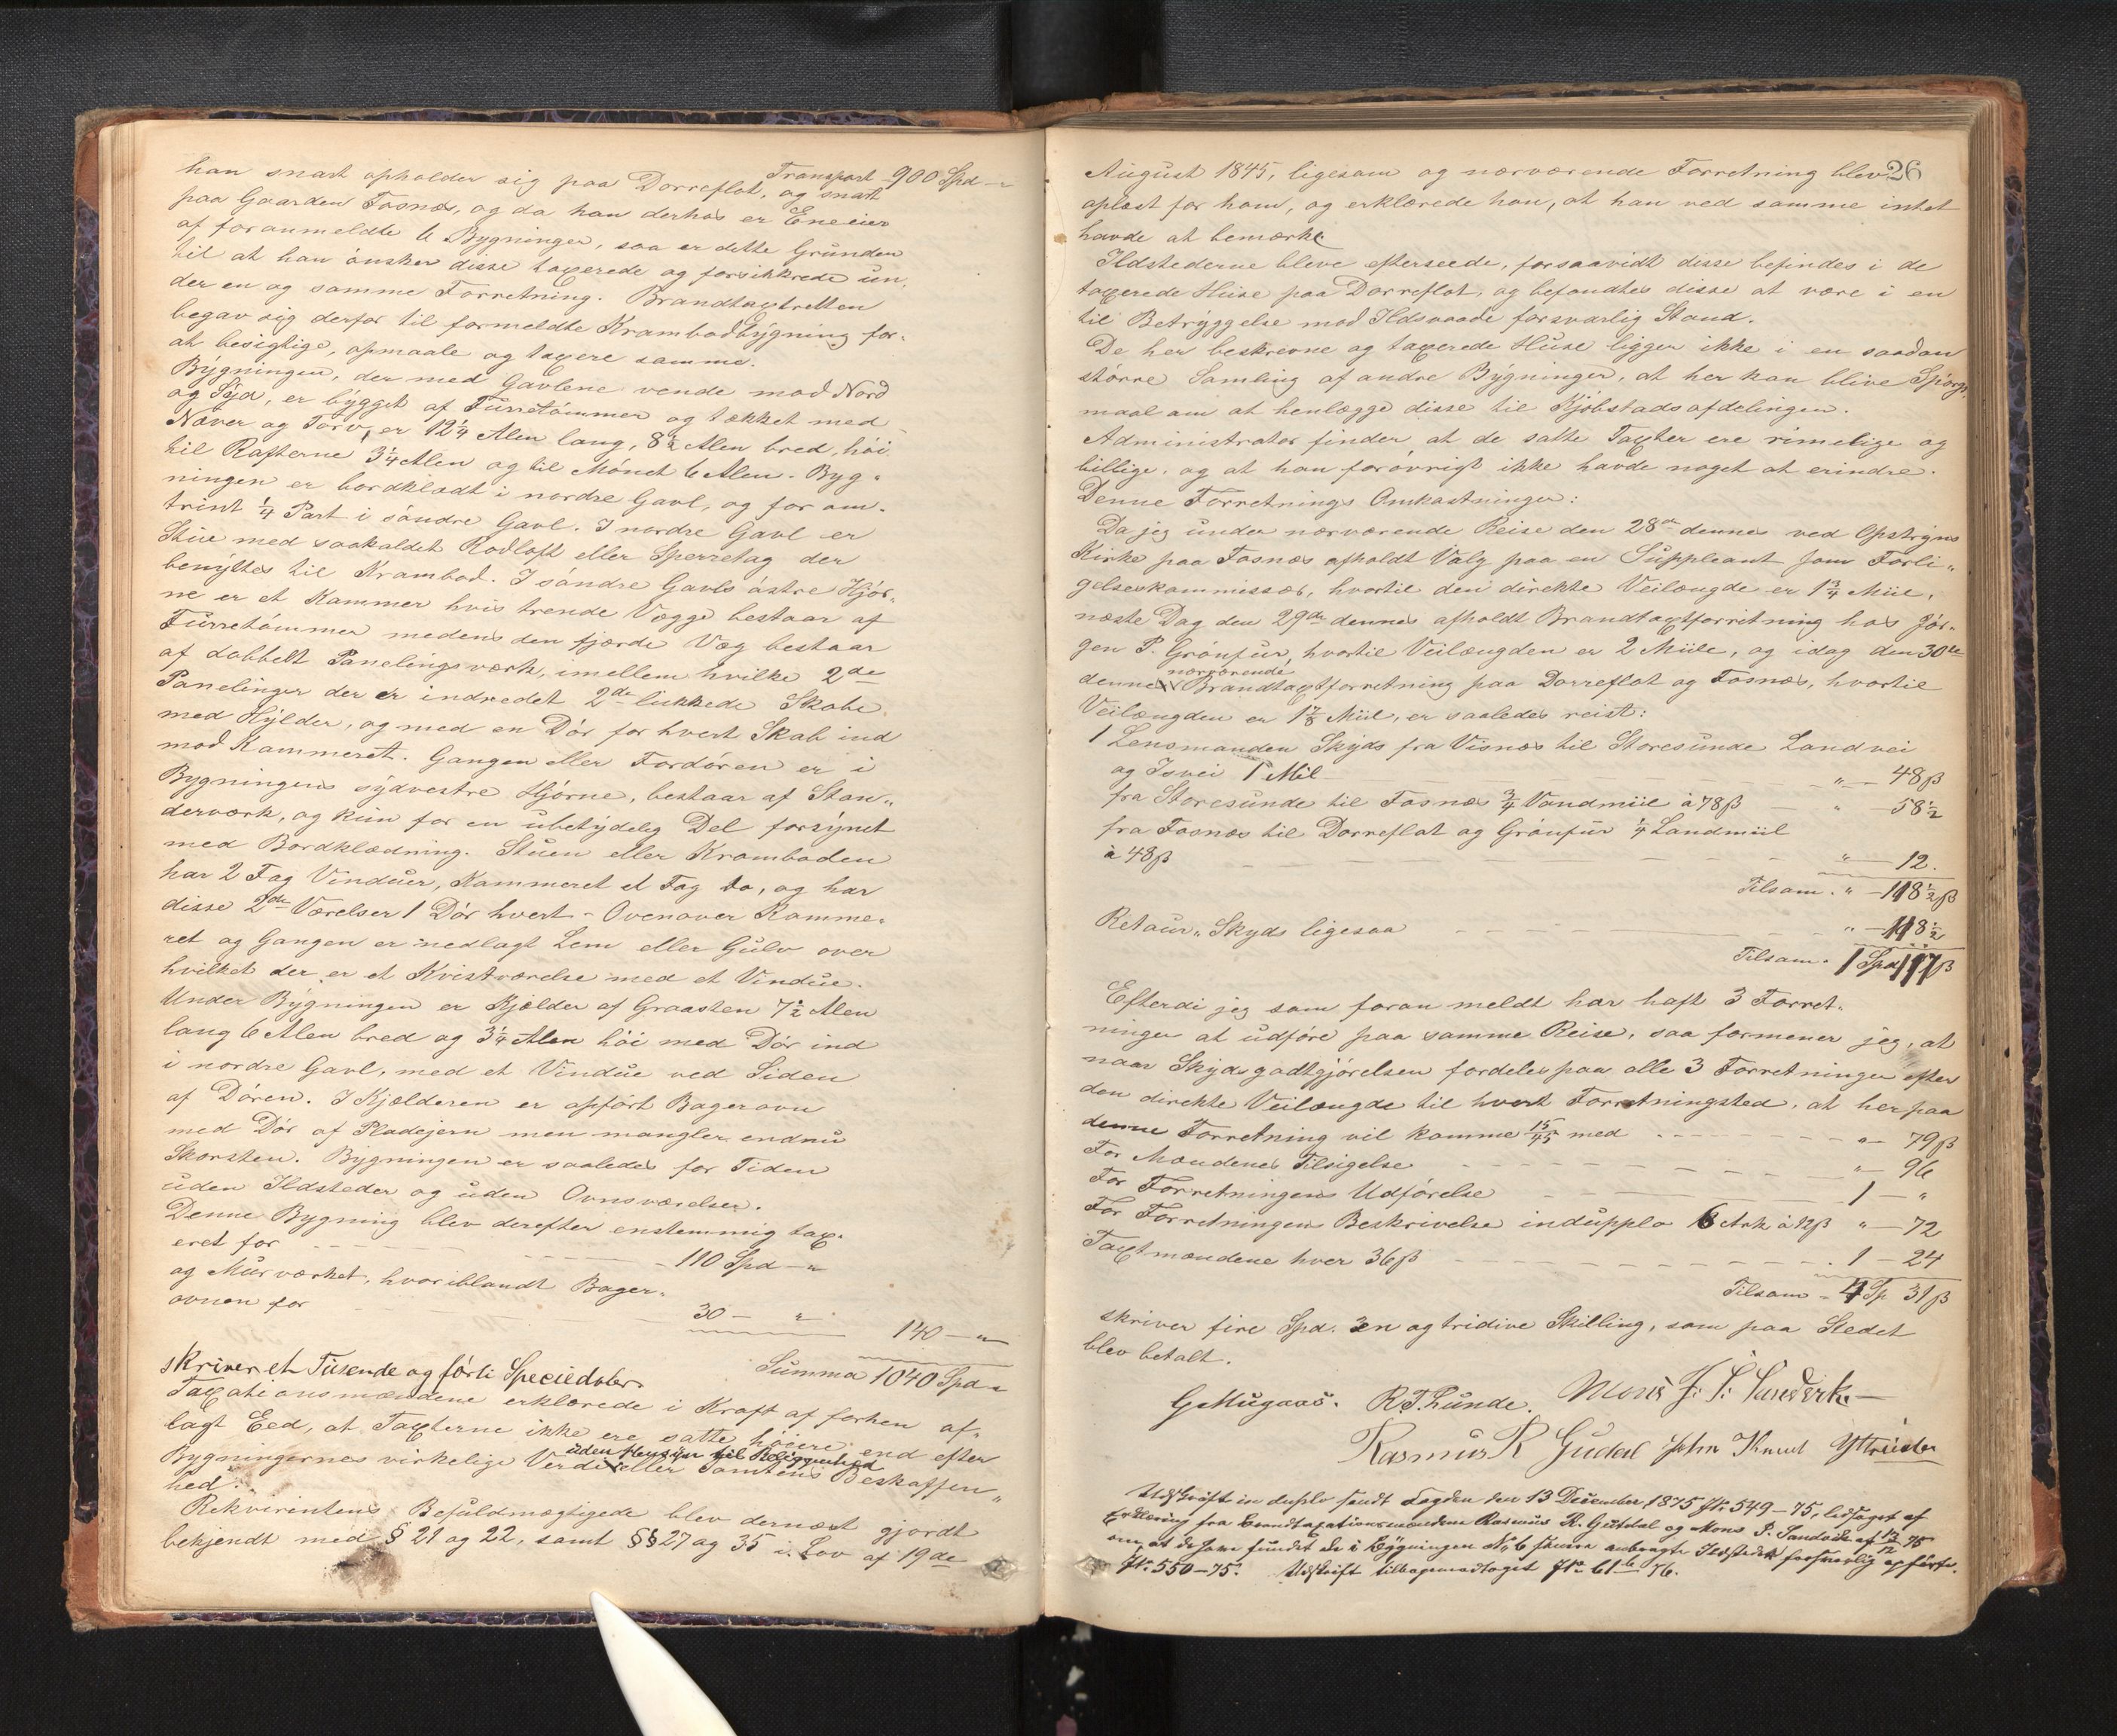 Transport 900 Spd „
han snart opholder sig paa Dorreflot, og snart
paa Gaarden Tosnæs, og da han derhos er Eneeier
af foranmeldte 6 Bygninger, saa er dette Grunden
til at han ønsker disse taxerede og forsikkrede un-
der en og samme Forretning. Brandtaxtretten
begav sig derfor til formeldte Krambodbygning for
at besigtige, opmaale og taxere samme.
Bygningen, der med Gavlene vende mod Nord
og Syd, er bygget af Furretømmer og tækket med
Næver og Torv, er 12 1/4 Alen lang, 8 1/2 Alen bred, høi
til Rafterne 3 1/4 Alen og til Mønet 6 Alen. Byg-
ningen er bordklædt i nordre Gavl, og for om-
trint 1/4 Part i søndre Gavl. I nordre Gavl er
Stue med saakaldet Rodloft eller Sperretag der
benyttes til Krambod. I søndre Gavls østre Hjør-
ne er et Kammer hvis trende Vægge bestaar af
Furretømmer medens den fjerde Væg bestaar
af dobbelt Panelingsværk, imellem hvilke 2de
Panelinger der er indredet 2de lukkede Skabe
med Hylder, og med en Dør for hvert Skab ind
mod Kammeret. Gangen eller Fordøren er i
Bygningens sydvestre Hjørne, bestaar af Stan-
derværk, og kun for en ubetydelig Del forsynet
med Bordklædning. Stuen eller Kramboden
har 2 Fag Vinduer, Kammeret et Fag do, og har
disse 2de Værelser 1 Dør hvert – Ovenover Kamme-
ret og Gangen er nedlagt Lem eller Gulv over
hvilket der er et Kvistværelse med et Vindue.
Under Bygningen er Kjælder af Graasten 7 1/2 Alen
lang 6 Alen bred og 3 1/4 Alen høi med Dør ind
i nordre Gavl, med et Vindue ved Siden
af Døren. I Kjælderen er opført Bagerovn
med Dør af Pladejern men mangler endnu
Skorsten. Bygningen er saaledes for Tiden
uden Ildsteder og uden Ovnsværelser.
Denne Bygning blev derefter enstemmig tax-
eret for 110 Spd „
og Murværket, hvoriblandt Bager-
ovnen for 30 – „ 140 – „
Summa 1040 Spd „
skriver et Tusende og førti Speciedaler.
Taxationsmændene erklærede i Kraft af forhen af-
lagt Eed, at Taxterne ikke ere satte høiere end efter
Bygningernes virkelige Verdi uden Hensyn til Beliggenhed eller Tomtens Beskaffen-
hed.
Rekvirentens Befuldmægtigede blev dernæst gjordt
bekjendt med § 21 og 22, samt §§ 27 og 35 i Lov af 19de
26
August 1845, ligesom og nærværende Forretning blev
oplæst for ham, og erklærede han, at han ved samme intet
havde at bemærke
Ildstederne bleve efterseede, forsaavidt disse befindes i de
taxerede Huse paa Dorreflot, og befandtes disse at være i en
til Betryggelse mod Ildsvaade forsvarlig Stand.
De her beskrevne og taxerede Huse ligger ikke i en saadan
større Samling af andre Bygninger, at her kan blive Spørgs-
maal om at henlægge disse til Kjøbstadsafdelingen.
Administrator finder at de satte Taxter ere rimelige og
billige, og at han forøvrigt ikke havde noget at erindre.
Denne Forretnings Omkostninger:
Da jeg under nærværende Reise den 28de dennes ved Opstryns
Kirke paa Tosnæs afholdt Valg paa en Suppleant som Forli-
gelseskommissær, hvortil den direkte Veilængde er 1 3/4 Miil,
næste Dag den 29de dennes afholdt Brandtaxtforretning hos Jør-
gen P. Grønfur, hvortil Veilængden er 2 Miile, og idag den 30te
dennes nærværende Brandtaxtforretning paa Dorreflot og Tosnæs, hvortil
Veilængden er 1 7/8 Miil, er saaledes reist:
1 Lensmanden Skyds fra Visnæs til Storesunde Landvei
og Isvei 1 Mil „ – 48 ß
fra Storesunde til Tosnæs 3/4 Vandmiil à 78 ß „ – 58 1/2
fra Tosnæs til Dorreflot og Grønfur 1/4 Landmiil
à 48 ß „ – 12.
Tilsam. „ – 118 1/2 ß
Retour-Skyds ligesaa „ – 118 1/2
Tilsam. 1 Spd 117 ß
Efterdi jeg som foran meldt har haft 3 Forret-
ninger at udføre paa samme Reise, saa formener jeg, at
naar Skydsgodtgjørelsen fordeles paa alle 3 Forretninger efter
den direkte Veilængde til hvert Forretningsted, at her paa
denne Forretning vil komme 15/45 med „ – 79 ß
For Mændenes Tilsigelse „ – 96
For Forretningens Udførelse 1 – „
For Forretningens Beskrivelse indupplo 6 Ark à 12 ß „ – 72
Taxtmændene hver 36 ß 1 – 24
Tilsam – 4 Sp 31 ß
skriver fire Spd. en og tridive Skilling, som paa Stedet
blev betalt.
G Mugaas. R. T. Lunde. Mons J. P. Sandvik
Rasmus R Gudal John Knud Yttreeide
Udskrift in duplo sendt Fogden den 13 December 1875 Jr. 549–75, ledsaget af
Erklæring fra Brandtaxationsmændene Rasmus R. Gutdal og Mons P. Sandvik af 12/12 75
om at de have fundet de i Bygningen No 6 anbragte Ildsteder forsvarlig opførte.
Jr. 550–75. Udskrift tilbagemodtaget Jr. 61 b 76.